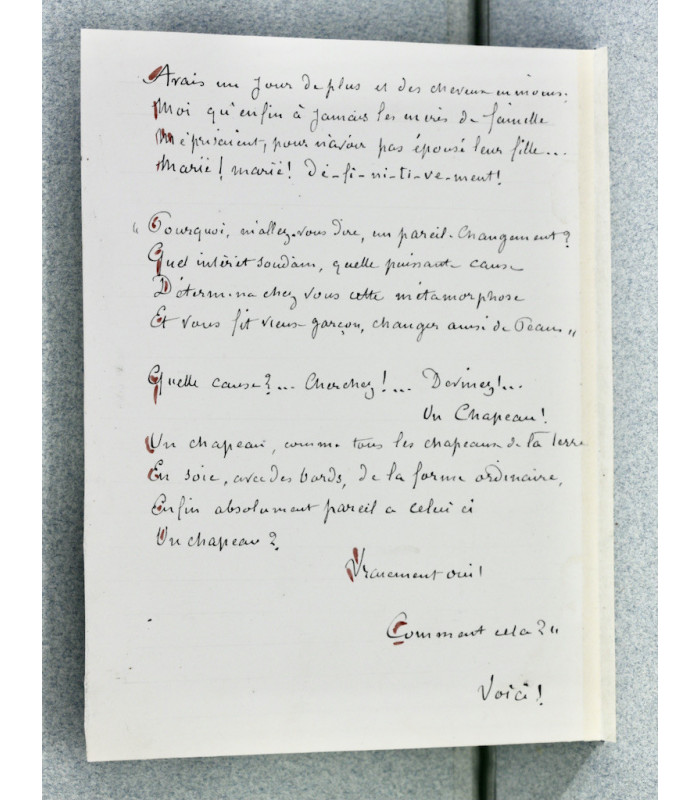 Avais un jour de plus et des cheveux en moins.
Moi qu'enfin à jamais les mères de famille
Méprisaient, pour n'avoir pas épousé leur fille...
Marié! marié! Dé-fi-ni-ti-ve-ment!
"Pourquoi, m'allez-vous dire, un pareil changement?
Quel intérêt soudain, quelle puissante cause
Détermina chez vous cette métamorphose
Et vous fit vieux garçon, changer ainsi de Peau"
Quelle cause?... Cherchez!... Devinez!...
Un Chapeau!
Un chapeau, comme tous les chapeaux de la terre
En soie, avec des bords, de la forme ordinaire,
Enfin absolument pareil a celui ci
Un chapeau?
Vraiement oui!
Comment cela?"
Voici!